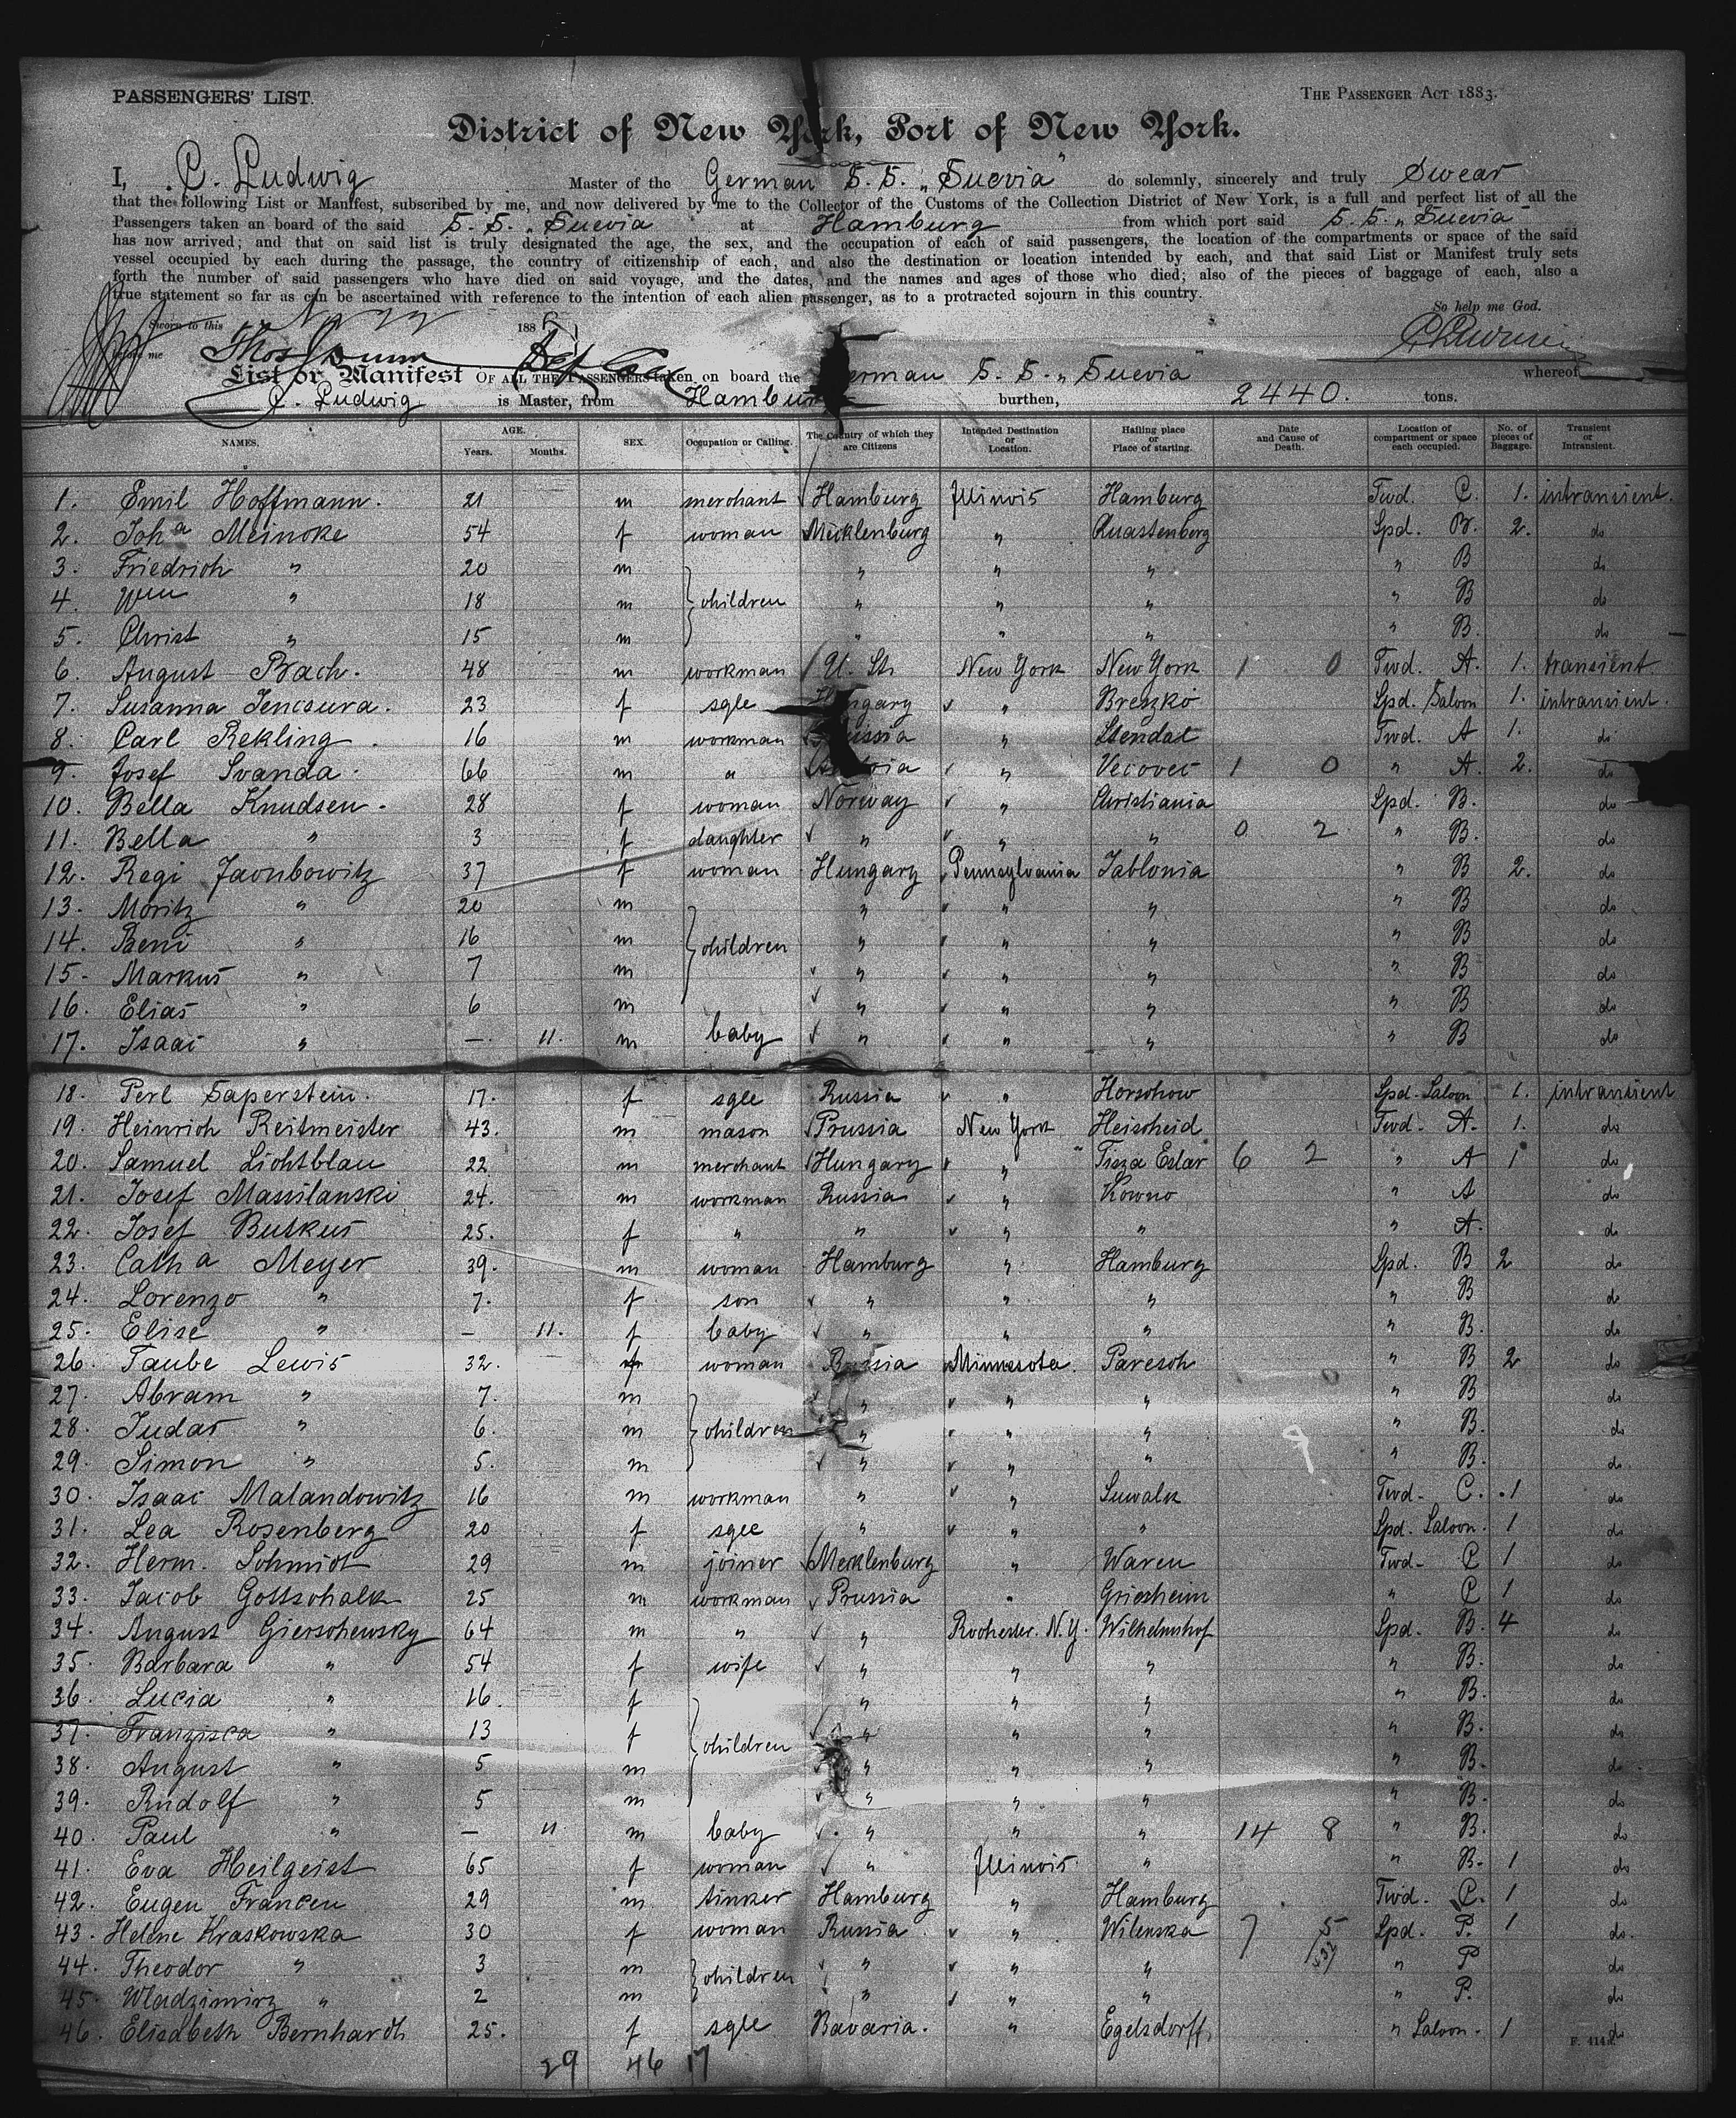 PASSENGERS' LIST.
THE PASSENGER ACT 1883.
District of New York, Port of New York.
I, C. Ludwig Master of the German S.S. „Suevia" do solemnly, sincerely and truly Swear
that the following List or Manifest, subscribed by me, and now delivered by me to the Collector of the Customs of the Collection District of New York, is a full and perfect list of all the
Passengers taken on board of the said S.S. „Suevia at Hamburg from which port said S.S. „Suevia"
has now arrived; and that on said list is truly designated the age, the sex, and the occupation of each of said passengers, the location of the compartments or space of the said
vessel occupied by each during the passage, the country of citizenship of each, and also the destination or location intended by each, and that said List or Manifest truly sets
forth the number of said passengers who have died on said voyage, and the dates, and the names and ages of those who died; also of the pieces of baggage of each, also a
true statement so far as can be ascertained with reference to the intention of each alien passenger, as to a protracted sojourn in this country.
So help me God.
Sworn to this 188
before me
List or Manifest OF ALL THE PASSENGERS taken on board the German S.S. „Suevia" whereof
C. Ludwig is Master, from Hamburg burthen, 2440. tons.
NAMES. AGE. Years. Months. SEX. Occupation or Calling. The Country of which they are Citizens Intended Destination or Location. Hailing place or Place of starting. Date and Cause of Death. Location of compartment or space each occupied. No. of pieces of Baggage. Transient or Intransient.
1. Emil Hoffmann. 21 m merchant Hamburg Illinois Hamburg Fwd. C. 1. intransient.
2. Joha Meincke 54 f woman Mecklenburg „ Quastenberg Spd. B. 2. do
3. Friedrich „ 20 m „ „ „ „ B do
4. Wm „ 18 m children „ „ „ „ B do
5. Christ „ 15 m „ „ „ „ B. do
6. August Bach. 48 m workman U. St. New York New York 1 0 Fwd. A. 1. transient.
7. Susanna Jencsura. 23 f sgle Hungary „ Breszko Spd. Saloon 1. intransient.
8. Carl Rekling. 16 m workman Prussia „ Stendal Fwd. A 1. do
9. Josef Svanda. 66 m „ Austria „ Vecovec 1 0 „ A. 2. do
10. Bella Knudsen. 28 f woman Norway „ Christiania Spd. B. do
11. Bella „ 3 f daughter „ „ „ 0 2 „ B. do
12. Regi Jacubowitz 37 f woman Hungary Pennsylvania Jablonia „ B 2. do
13. Moritz „ 20 m „ „ „ „ B do
14. Beni „ 16 m children „ „ „ „ B do
15. Markus „ 7 m „ „ „ „ B do
16. Elias „ 6 m „ „ „ „ B do
17. Isaac „ — 11. m baby „ „ „ „ B do
18. Perl Saperstein. 17. f sgle Russia „ Horschow Spd. Saloon 1. intransient
19. Heinrich Reitmeister 43. m mason Prussia New York Heischeid Fwd. A. 1. do
20. Samuel Lichtblau 22 m merchant Hungary „ Tisza Eslar 6 2 „ A 1 do
21. Josef Massilanski 24. m workman Russia „ Kowno „ A do
22. Josef Butkus 25. f „ „ „ „ „ A. do
23. Catha Meyer 39. m woman Hamburg „ Hamburg Spd. B 2 do
24. Lorenzo „ 7. f son „ „ „ „ B do
25. Elise „ — 11. f baby „ „ „ „ B. do
26. Taube Lewis 32. woman Russia Minnesota. Paresch „ B 2 do
27. Abram „ 7. m „ „ „ „ B do
28. Judas „ 6. m children „ „ „ „ B. do
29. Simon „ 5. m „ „ „ „ B. do.
30. Isaac Malandowitz 16 m workman „ „ Suwalk Fwd. C. 1 do
31. Lea Rosenberg 20 f sgle „ „ „ Spd. Saloon. 1 do
32. Herm. Schmidt 29 m joiner Mecklenburg „ Waren Fwd. C 1 do
33. Jacob Gottschalk 25 m workman Prussia „ Griesheim „ C 1 do
34. August Gierschewsky 64 m „ „ Rochester. N.Y. Wilhelmshof Spd. B. 4 do
35. Barbara „ 54 f wife „ „ „ „ B. do
36. Lucia „ 16. f „ „ „ „ B. do
37. Franzisca „ 13 f children „ „ „ „ B. do
38. August „ 5 m „ „ „ „ B. do
39. Rudolf „ 5 m „ „ „ „ B. do
40. Paul „ — 11. m baby „ „ „ 14 8 „ B. do
41. Eva Heilgeist 65 f woman „ Illinois. „ „ B. 1 do
42. Eugen Francen 29 m tinker Hamburg „ Hamburg Fwd. C. 1 do
43. Helene Kraskowska 30 f woman Russia „ Wilenska 7 5 Spd. P. 1 do.
44. Theodor „ 3 m children „ „ „ „ P do
45. Wladzimirz „ 2 m „ „ „ „ P. do
46. Elisabeth Bernhardt 25. f sgle Bavaria. „ Egelsdorff „ Saloon. 1 do
29 46 17